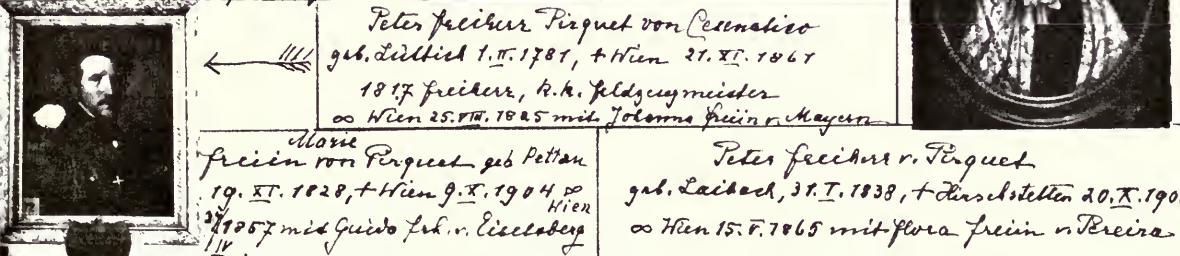 Peter Freiherr Pirquet von Cesenatico
geb. Lüttich 1.II.1781, + Wien 21.XI.1861
1817 Freiherr, k.k. Feldzeugmeister
∞ Wien 25.VIII.1825 mit Johanna Freiin v. Mayern
Marie
Freiin von Pirquet geb Pettau
19.XI.1828, + Wien 9.X.1904 ∞
Wien
1857 mit Guido Frh. v. Eiselsberg
IV
Peter Freiherr v. Pirquet
geb. Laibach, 31.I.1838, + Hirschstetten 20.X.190
∞ Wien 15.V.1865 mit Flora Freiin v. Pereira